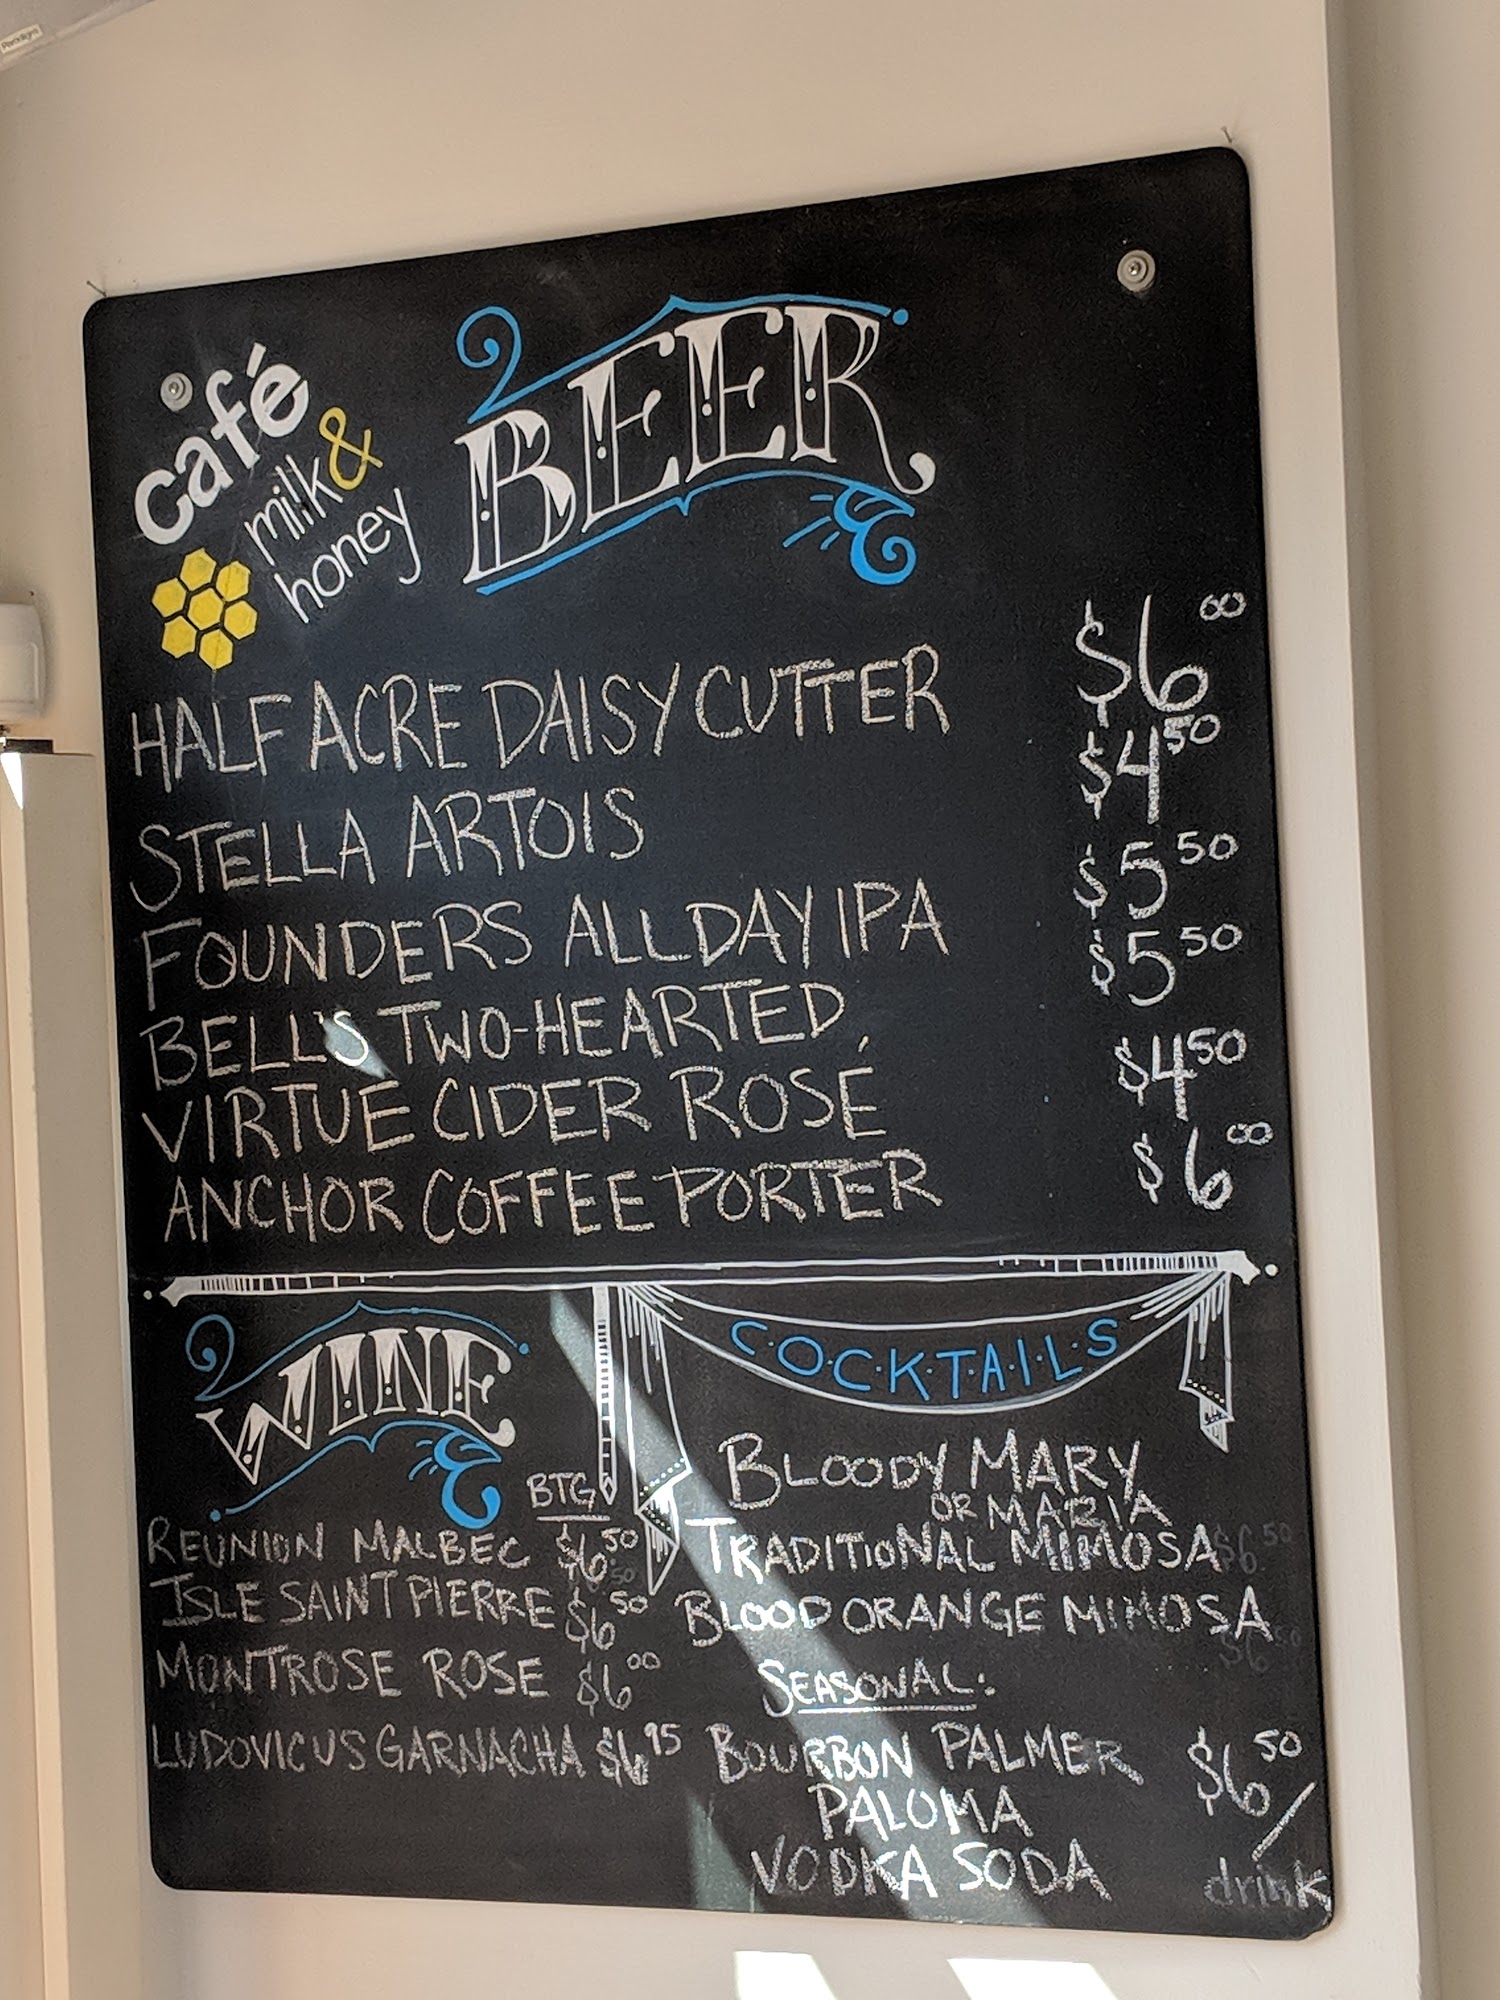 café
milk &
honey
BEER
HALF ACRE DAISY CUTTER $6.00
STELLA ARTOIS $4.50
FOUNDERS ALL DAY IPA $5.50
BELL'S TWO-HEARTED $5.50
VIRTUE CIDER ROSÉ $4.50
ANCHOR COFFEE PORTER $6.00
WINE
BTG
REUNION MALBEC $6.50
ISLE SAINT PIERRE $6.50
MONTROSE ROSE $6.00
LUDOVICUS GARNACHA $6.95
C·O·C·K·T·A·I·L·S
BLOODY MARY
OR MARIA
TRADITIONAL MIMOSA $6.50
BLOOD ORANGE MIMOSA
$6.50
SEASONAL:
BOURBON PALMER $6.50/
PALOMA
VODKA SODA drink